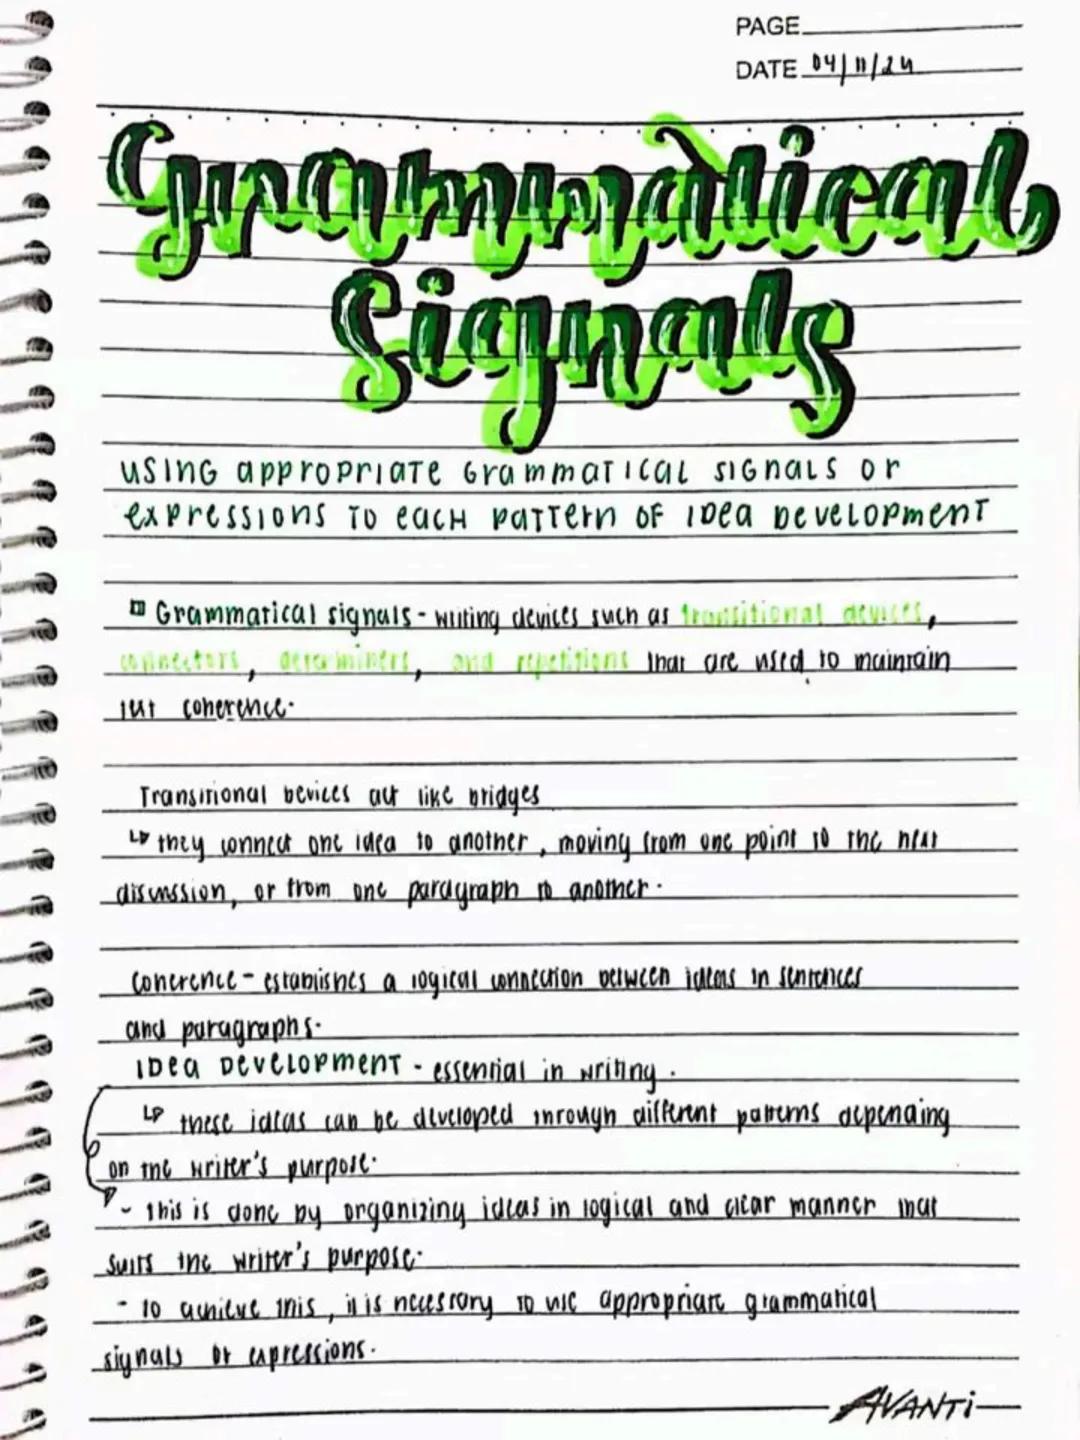 PAGE
DATE 04/11/24
Grammatical
Signals
USING appropriate Grammatical SIGNALS or
expressions to each pattern of idea development
Grammatical signals - writing devices such as transitional devices,
connectors, determiners, and repetitions that are used to maintain
text coherence.
Transitional Devices act like bridges
they connect one idea to another, moving from one point to the next
discussion, or from one paragraph to another.
Coherence - establishes a logical connection between ideas in sentences
and paragraphs.
IDea Development - essential in writing.
these ideas can be developed through different patterns depending
on the writer's purpose.
- this is done by organizing ideas in logical and clear manner that
suits the writer's purpose.
- to achieve this, it is necessary to use appropriate grammatical
signals or expressions.
AVANTi